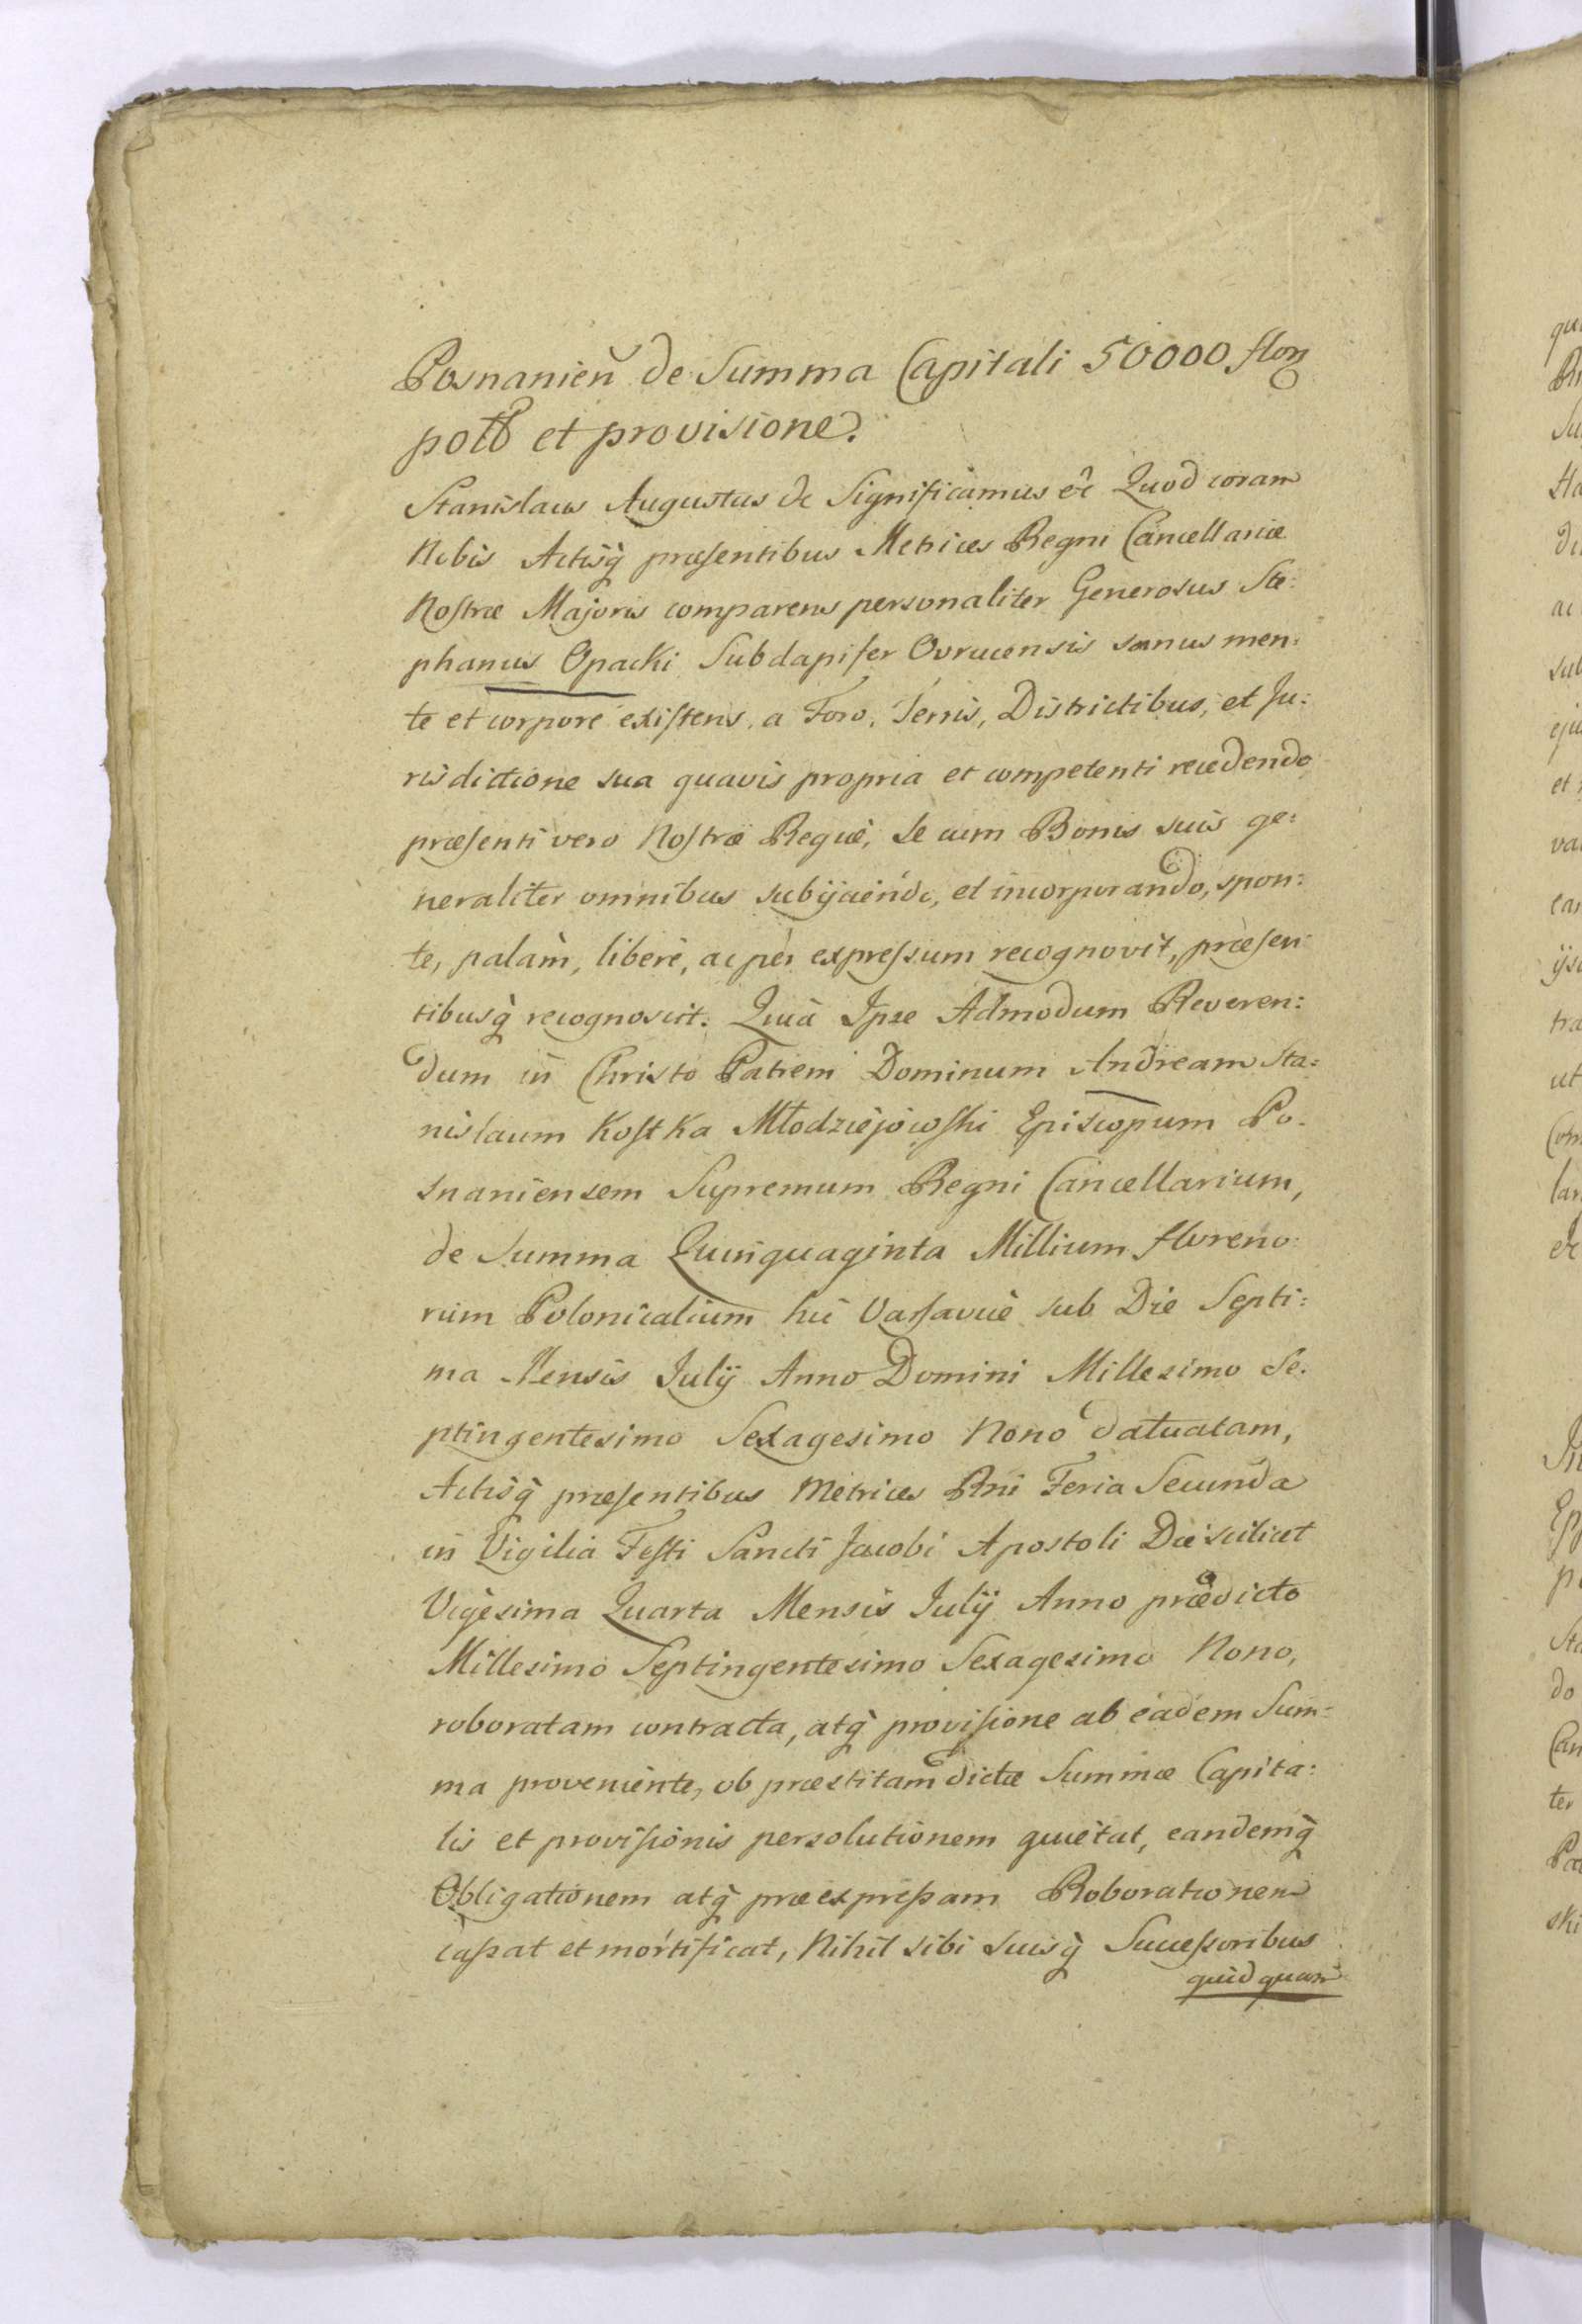 Posnanien̄ de Summa Capitali 50000 flor
polł et provisione.
Stanislaus Augustus &c Significamus &c Quod coram
Nobis Actisq̀ præsentibus Metrices Regni Cancellariæ
Nostræ Majoris comparens personaliter Generosus Ste:
phanus Opacki Subdapifer Ovrucensis sanus men:
te et corpore existens, a Foro, Terris, Districtibus, et Ju:
risdictione sua quavis propria et competenti recedendo
præsenti vero Nostræ Regiæ, se cum Bonis suis ge:
neraliter omnibus subijciendo, et incorporando, spon:
te, palàm, liberè, ac per expressum recognovit, præsen
tibusq̀ recognoscit. Quià Ipse Admodum Reveren:
dum in Christo Patrem Dominum Andream Sta:
nislaum Kostka Młodziejowski Episcopum Po:
snaniensem Supremum Regni Cancellarium,
de Summa Quinquaginta Millium floreno:
rum Polonicalium hic Varsaviæ sub Die Septi:
ma Mensis Julij Anno Domini Millesimo Se:
ptingentesimo Sexagesimo Nono datuatam,
Actisq̀ præsentibus Metrices Rni Feria Secunda
in Vigilia Festi Sancti Jacobi Apostoli Die scilicet
Vigesima Quarta Mensis Julij Anno prædicto
Millesimo Septingentesimo Sexagesimo Nono,
roboratam contracta, atq̀ provisione ab eadem Sum=
ma proveniente, ob præstitam dictæ Summæ Capita:
lis et provisionis persolutionem quietat, eandemq̀
Obligationem atq̀ præexpressam Roborationem
cassat et mortificat, Nihil sibi suisq̀ Successoribus
quidquam